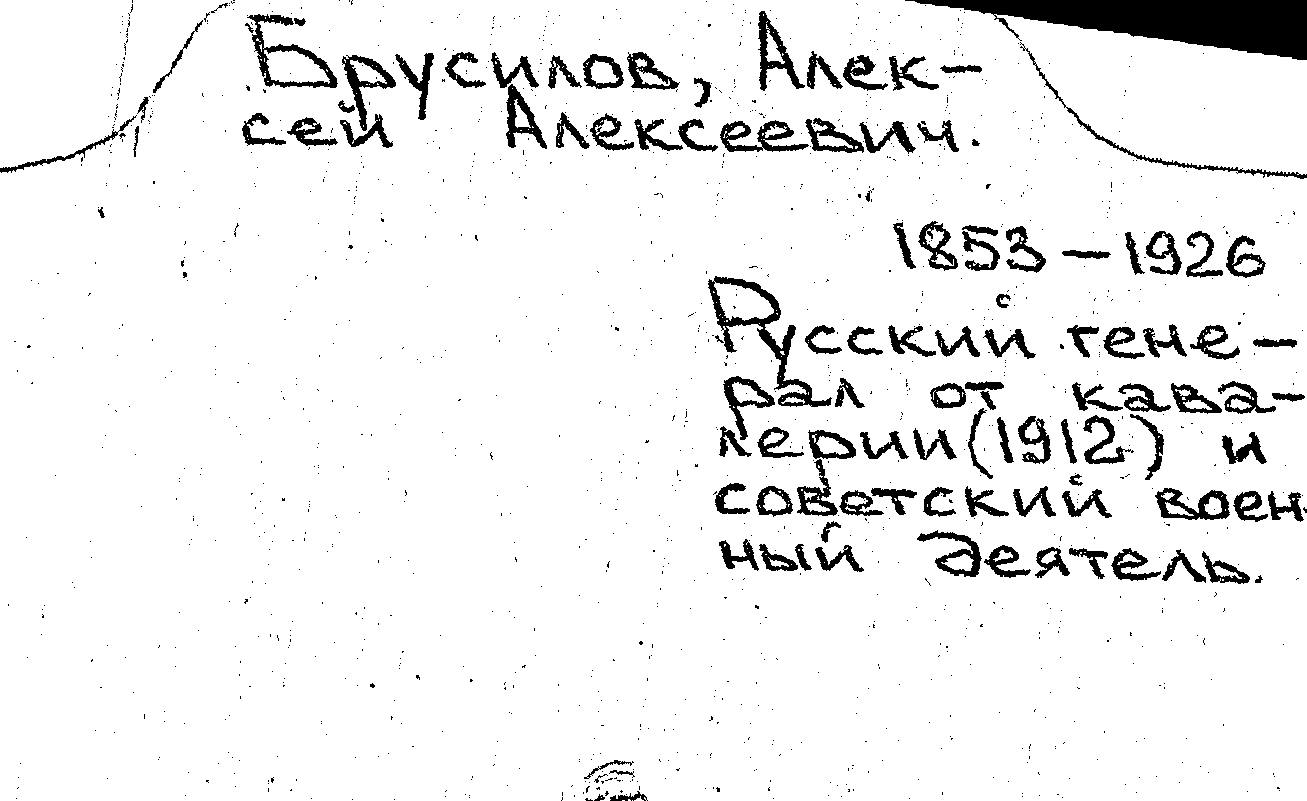 Брусилов, Алек-
сей Алексеевич.
1853 – 1926
Русский гене-
рал от кава-
лерии (1912) и
советский воен-
ный деятель.